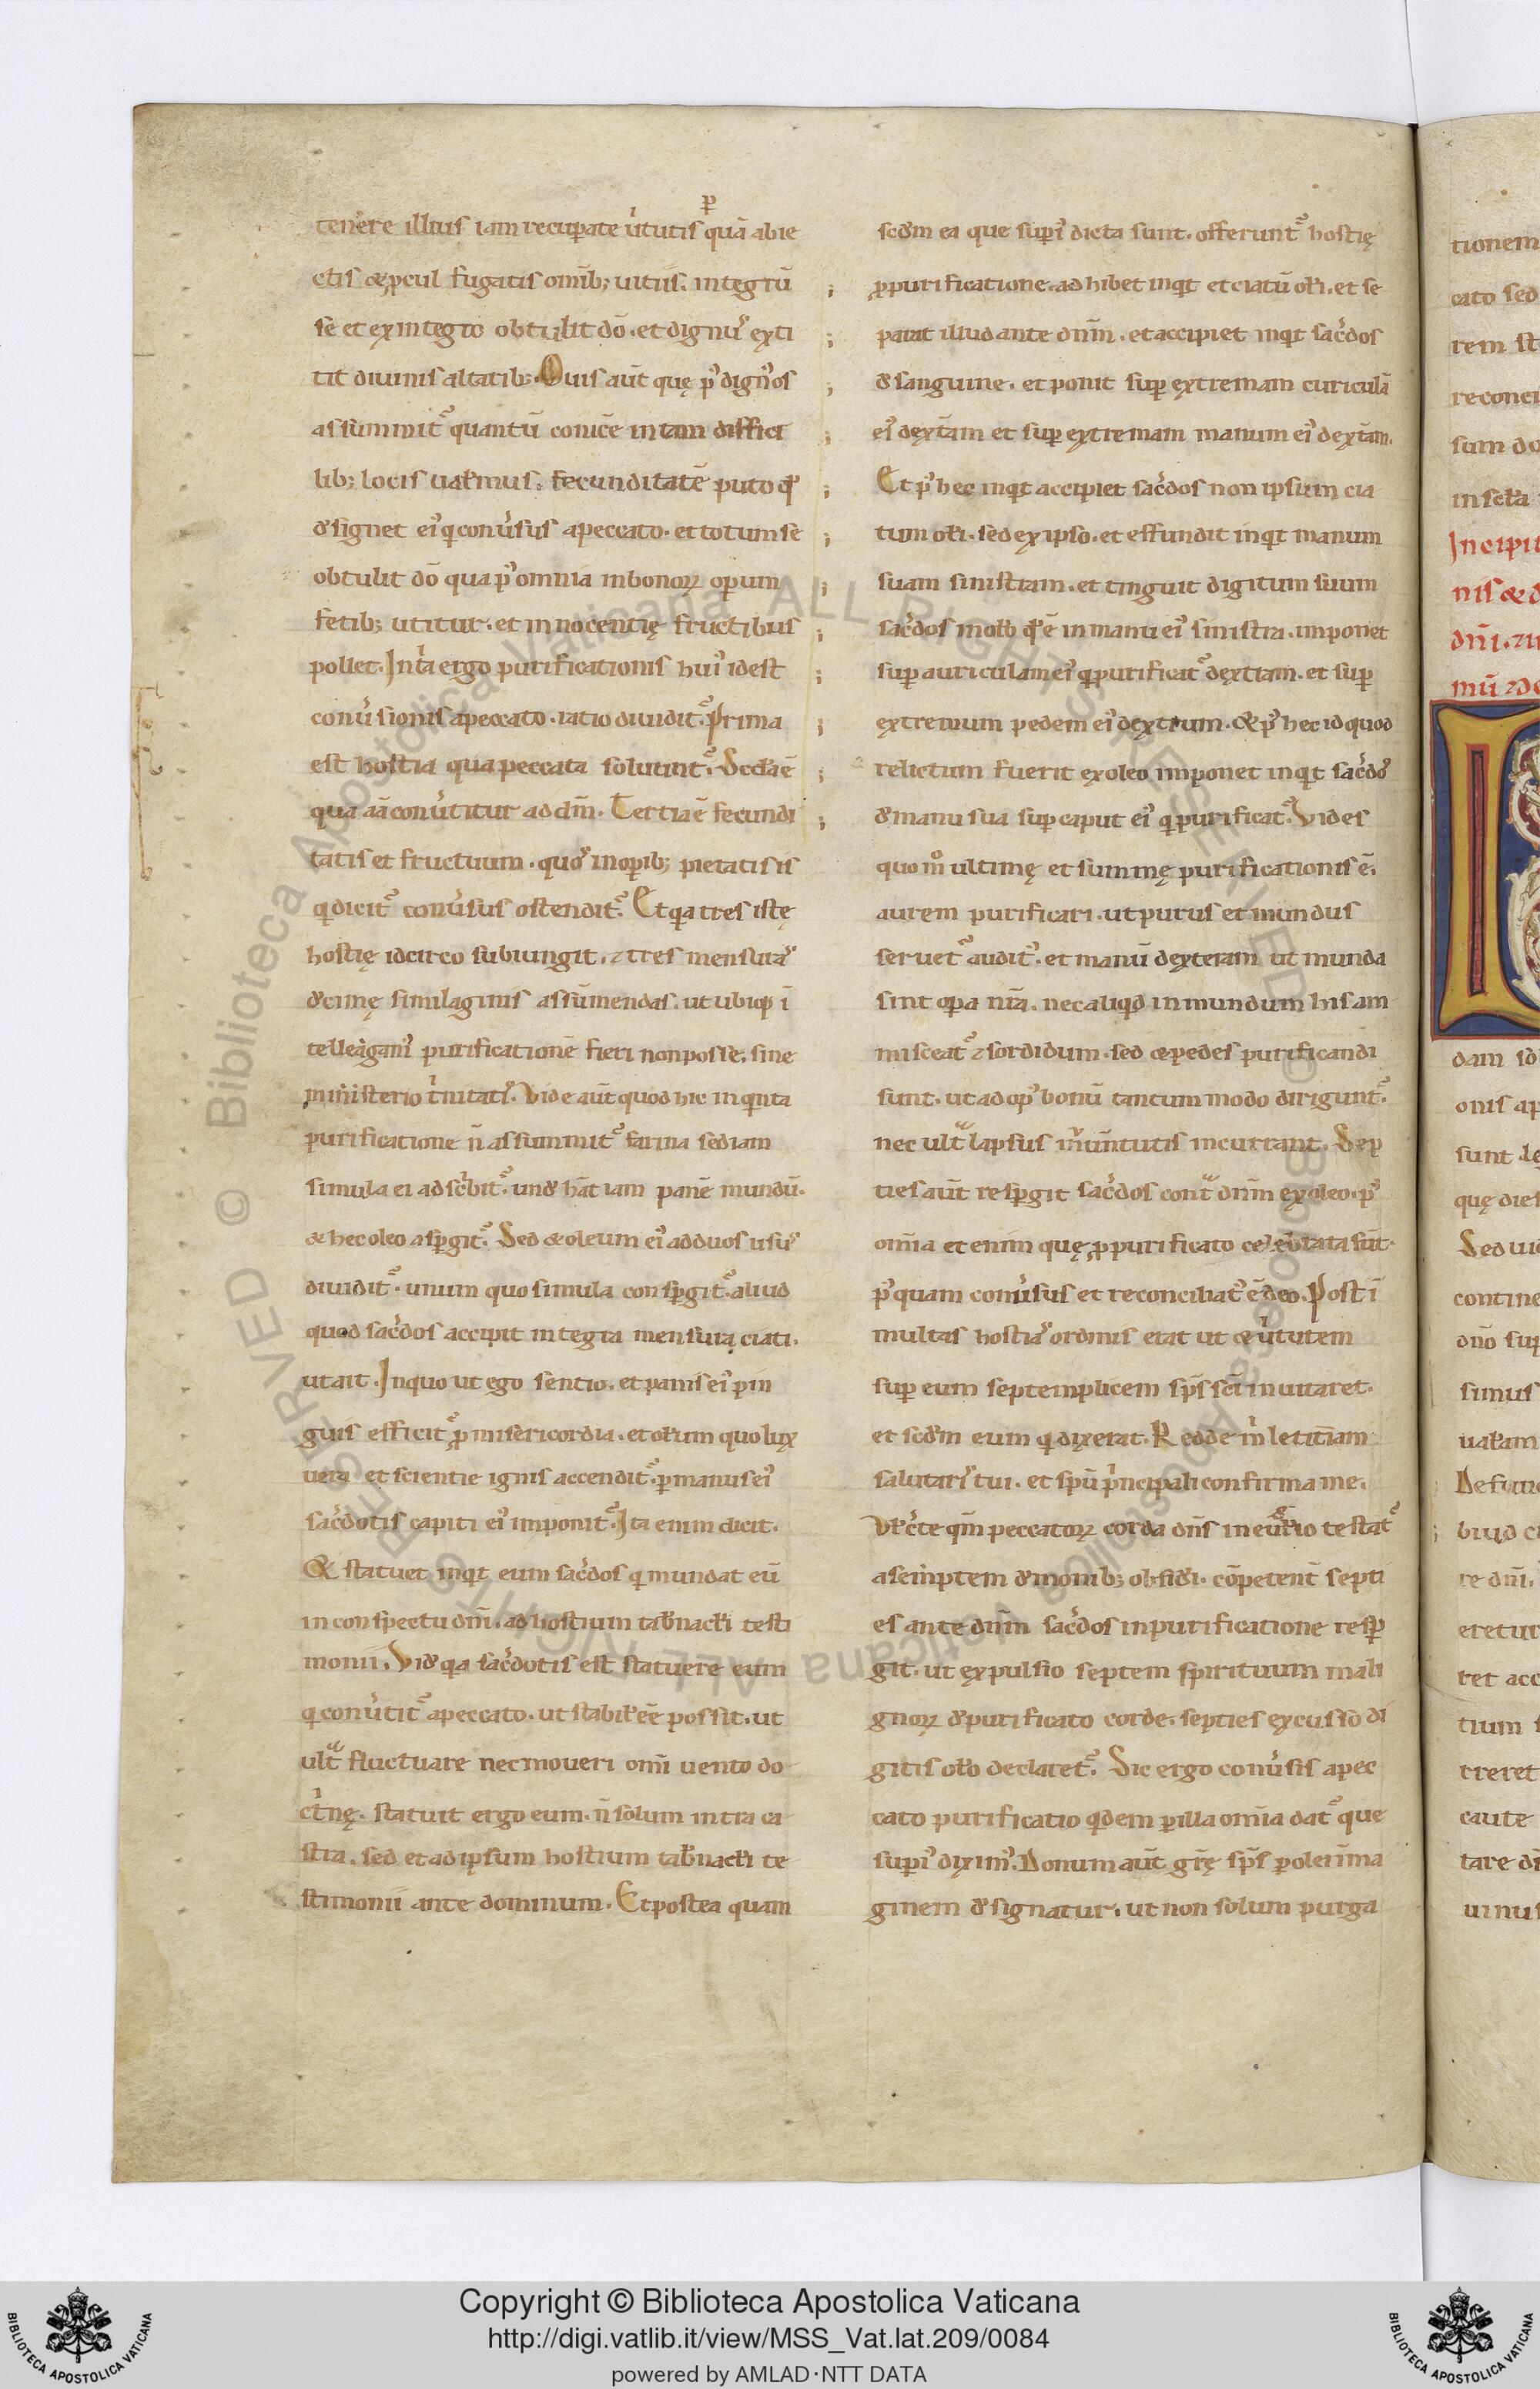 tenere illius iam recupate u̓tutis quā abie
ctis & ꝓcul fugatis omīb; uitiis. integrū
se et ex integro obtulit dō. et dignuſ exti
tit diuinis altarib;. Ouis aūt quę pꝰ dignꝰ os
assummitᷣ quantū conicē in tam diffici
lib; locis ualꝰmus. fecunditatē puto qđ
dꝰsignet eiꝰ q conuꝰsus a peccato. et totum se
obtulit dō qua pꝰ omnia in bonoꝝ opum
fetib; utitur. et innocentię fructibus
pollet. Intꝰa ergo purificationis huiꝰ idest
conuꝰsionis a peccato. ratio diuiditᷣ. Prima
est hostia qua peccata soluuntᷣ. Scđa ē
qua aīa conuꝰtitur ad dm̄. Tertia ē fecundi
tatis et fructuum. quoſ in opib; pietatis is
q dicitᷣ conuꝰsus ostenditᷣ. Et qa tres istę
hostię idcirco subiungit. ⁊ tres mensuraſ
dꝰcimę similaginis assūmendas. ut ubiqꝫ ī
tellegamꝰ purificationē fieri non posse. sine
ministerio tꝰnitatiſ. Vide aūt quod hic in qinta
purificatione n̄ assummitᷣ farina sed iam
simula ei adscꝰbitᷣ. undꝰ hāt iam panē mundū.
& hec oleo aspgitᷣ. Sed & oleum eiꝰ ad duos usuſ
diuiditᷣ. unum quo simula conspgitᷣ. aliud
quod sacꝰdos accipit integra mensura ciati.
ut ait. In quo ut ego sentio. et panis eiꝰ pin
guis efficitᷣ ꝓ misericordia. et olꝰum quo lux
uera et scientie ignis accenditᷣ. p manus eiꝰ
sacꝰdotis capiti eiꝰ imponitᷣ. Ita enim dicit.
& statuet inqt eum sacꝰdos q mundat eū
in conspectu dnī. ad hostium tabꝰnaclꝰi testi
monii. Vidꝰ qa sacꝰdotis est statuere eum
q conuꝰtitᷣ a peccato. ut stabilꝰ eē possit. ut
ultᷓ fluctuare nec moueri omī uento do
ctꝰnę. statuit ergo eum. n̄ solum intra ca
stra. sed et ad ipsum hostium tabꝰnaclꝰi te
stimonii ante dominum. Et postea quam
scđm ea que supiꝰ dicta sunt. offeruntᷣ hostię
ꝓ purificatione. adhibet inqt et ciatū olꝰi. et se
parat illud ante dnm̄. et accipiet inqt sacꝰdos
dꝰ sanguine. et ponit sup extremam curiculā
eiꝰ dextꝰam et sup extremam manum eiꝰ dextꝰam.
Et pꝰ hec inqt accipiet sacꝰdos non ipsum cia
tum olꝰi. sed ex ipso. et effundit inqt manum
suam sinistram. et tinguit digitum suum
sacꝰdos in olꝰo qđ ē in manu eiꝰ sinistra. imponet
sup auriculam eiꝰ q purificatᷣ dextram. et sup
extremum pedem eiꝰ dextrum. & pꝰ hec id quod
relictum fuerit ex oleo imponet inqt sacꝰdoſ
dꝰ manu sua sup caput eiꝰ q purificatᷣ. Vides
quom̊ ultimę et summę purificationis ē.
aurem purificari. ut purus et mundus
seruetᷣ auditꝰ. et manū dexteram ut munda
sint opa nr̄a. nec aliqd inmundum his am
misceatᷣ ⁊ sordidum. sed & pedes purificandi
sunt. ut ad opꝰ bonū tantummodo diriguntᷣ.
nec ultᷓ lapsus iuuentutis incurrant. Sep
ties aūt respgit sacꝰdos contᷓ dnm̄ ex oleo. pꝰ
om̄ia etenim quę ꝓ purificato celebrata sūt.
pꝰquam conuꝰsus et reconciliatꝰ ē deo. Post ī
multas hostiaſ ordinis erat ut & uꝰtutem
sup eum septemplicem sp̄s sc̄i inuitaret.
et scđm eum q dixerat. Redde m̓ letitiam
salutariſ tui. et spū pꝰncipali confirma me.
Vlꝰ cꝰte qm̄ peccatoꝝ corda dn̄s in euꝰlꝰio testatᷣ
a septem dꝰmonib; obsidꝰi. cōpetentꝰ septi
es ante dnm̄ sacꝰdos in purificatione resp
git. ut expulsio septem spirituum mali
gnoꝝ dꝰ purificato corde. septies excusso di
gitis olꝰo declaretᷣ. Sic ergo conuꝰsis a pec
cato purificatio qdem p illa om̄ia datᷣ que
supiꝰ diximꝰ. Donum aūt gr̄ę sp̄s p olei ima
ginem dꝰsignatur. ut non solum purga
tionem
cato sed
reconci
sum
Incipit
dn̄i.
dam
sunt
quę dies
Sed
contine
simus
eretur
ret
tium
treret
caute
Copyright © Biblioteca Apostolica Vaticana
http://digi.vatlib.it/view/MSS_Vat.lat.209/0084
powered by AMLAD·NTT DATA
BIBLIOTECA APOSTOLICA VATICANA
BIBLIOTECA APOSTOLICA VATICANA